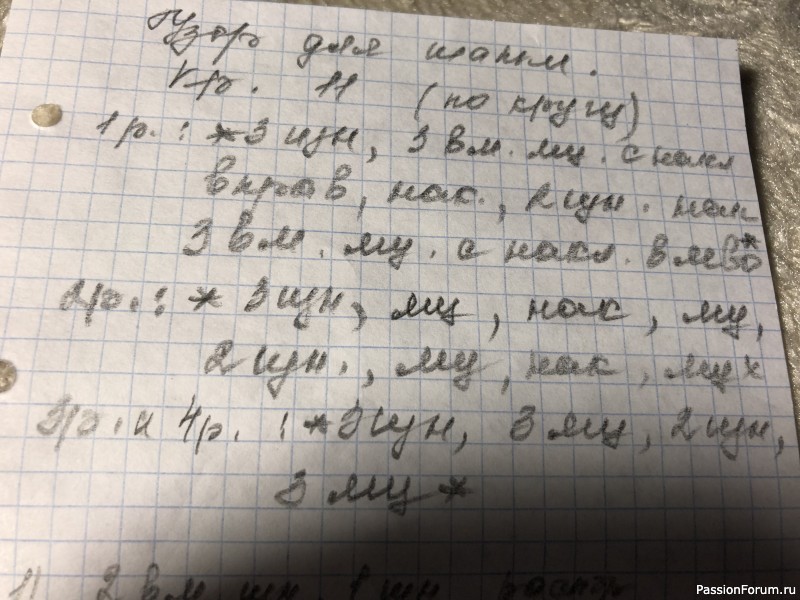 Узор для шапки.
Кр. 11 (по кругу)
1р.: *3 изн, 3 вм. лиц. с накл
вправ, нак., 2 изн. нак
3 вм. лиц. с накл. влево*
2р.: * 3 изн, лиц, нак, лиц,
2 изн., лиц, нак, лиц*
3р. и 4р.: *3 изн, 3 лиц, 2 изн,
3 лиц *
2 вм.
PassionForum.ru